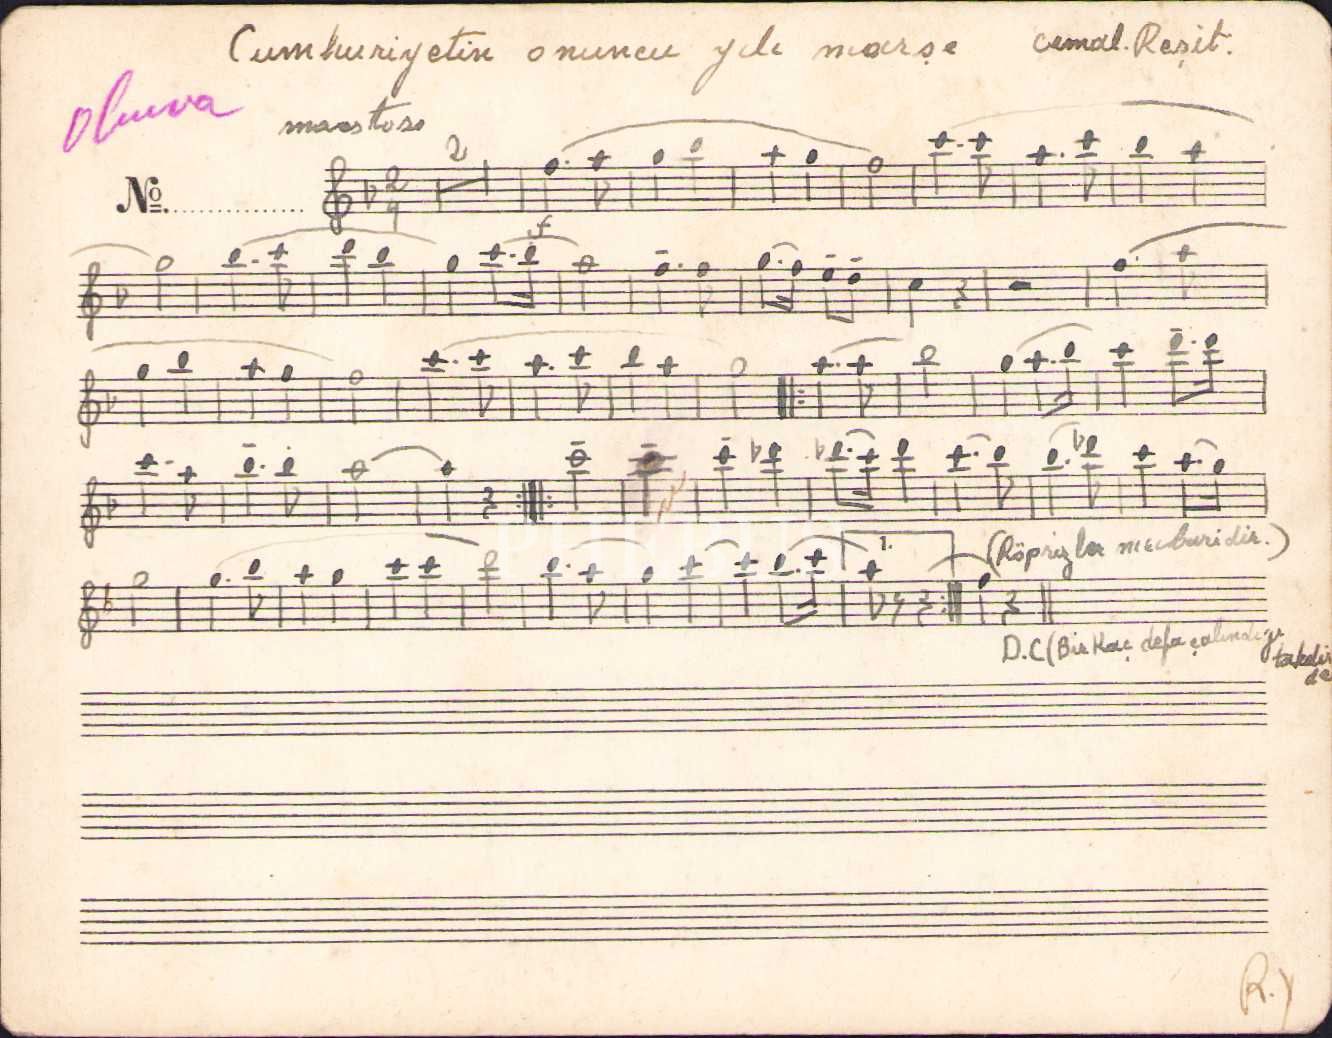 Cumhuriyetin onuncu yılı marşe cemal.Reşit.
maestoso
No
2
2
4
f
PHEBUS
1.
(Röprizler mecburidir.)
D.C (Bir Kaç defa çalındığı
takdir
de
R.Y